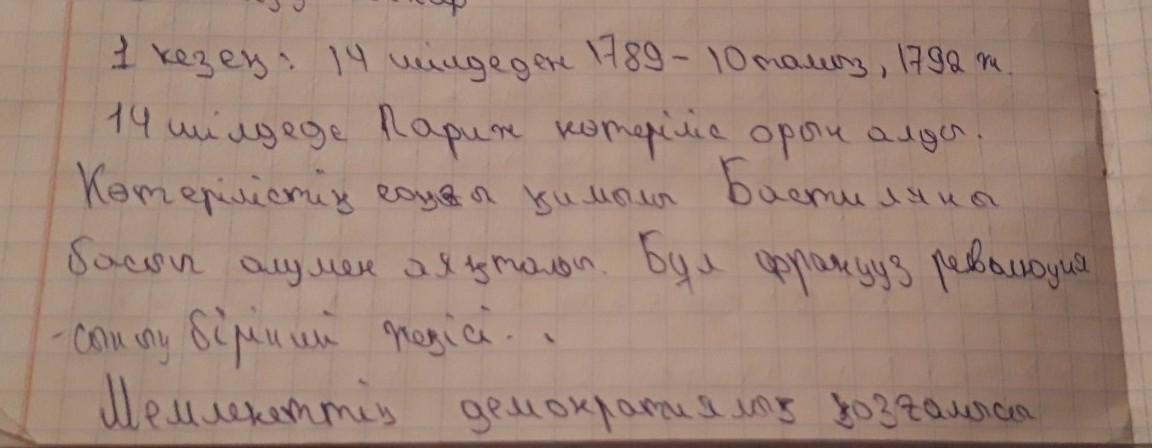 1 кезең: 14 шілдеден 1789 - 10 тамыз, 1792 ж.
14 шілдеде Париж көтеріліс орын алды.
Көтерілістің соңғы қимылы Бастиляны
басып алумен аяқталып. Бұл француз революция
-сының бірінші жеңісі.
Мемлекеттің демократиялық қозғалысы